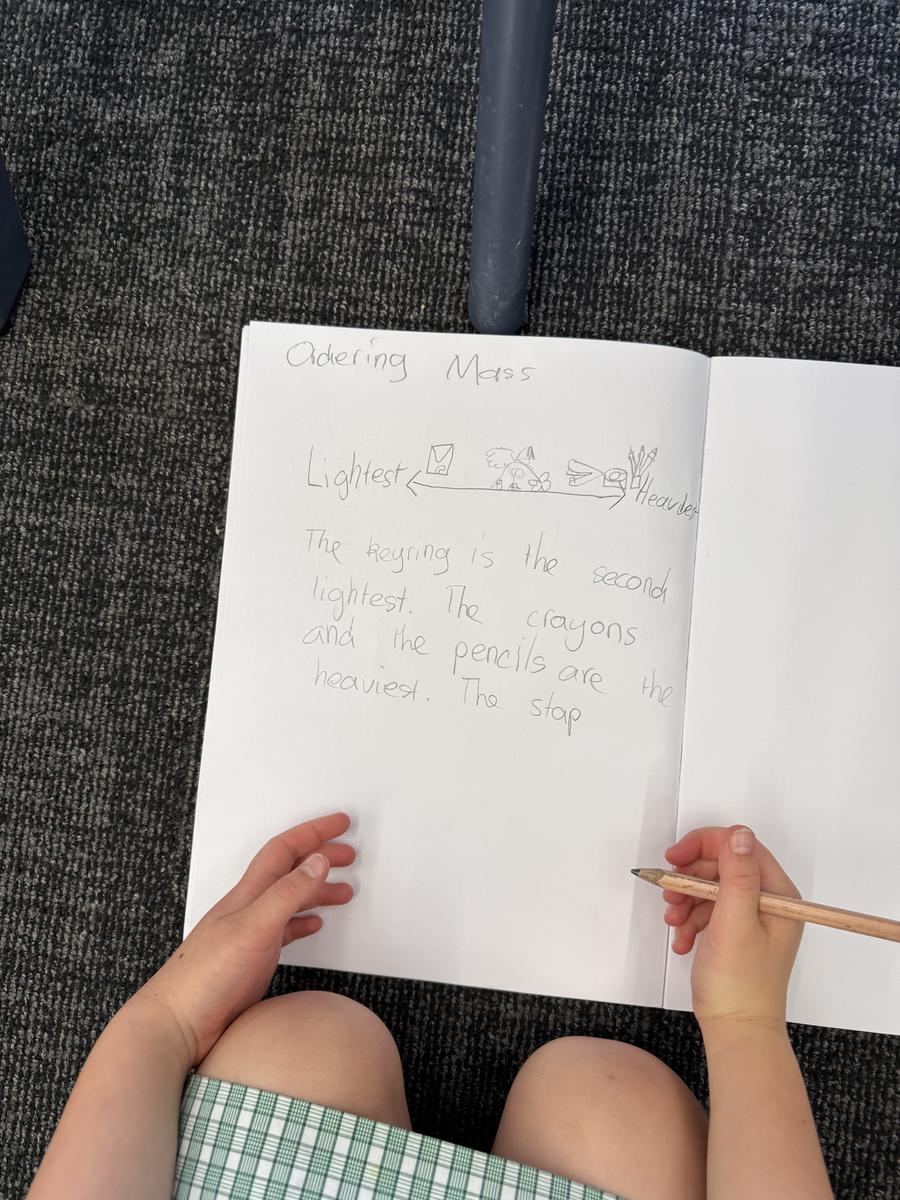 Odering Mass
Lightest Heavdest
The keyring is the second
lightest. The crayons
and the pencils are the
heaviest. The stap